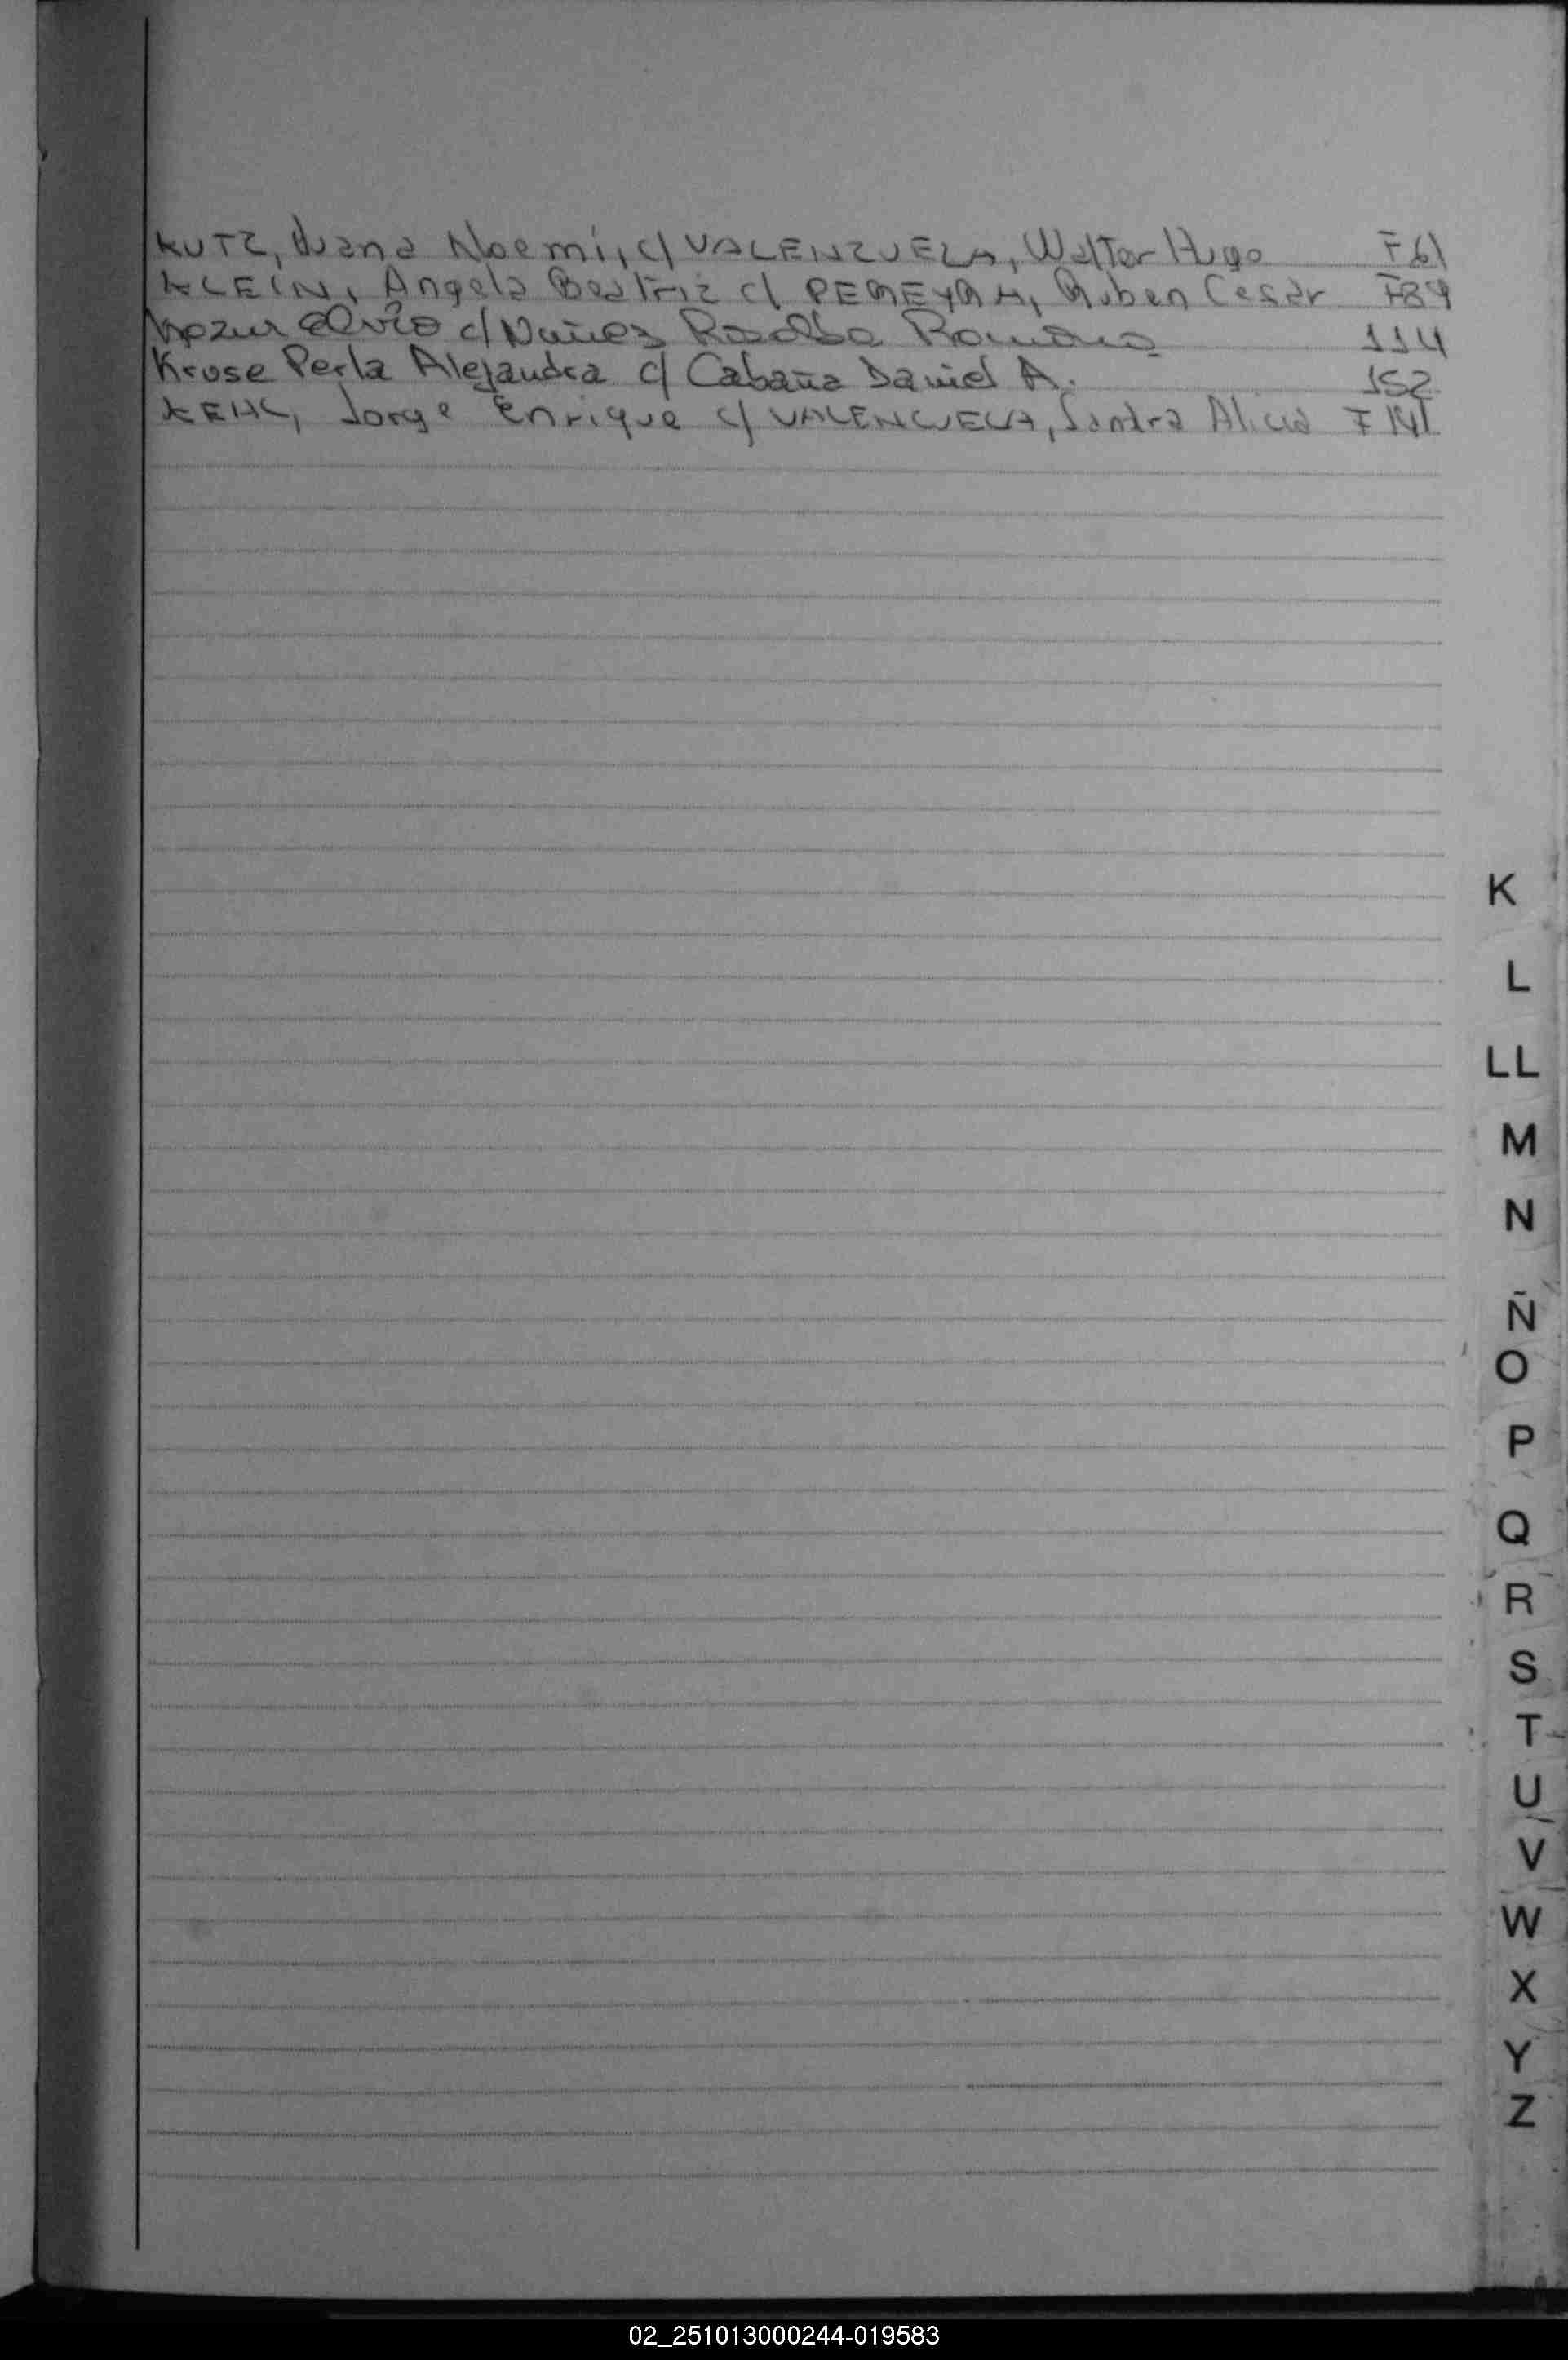 KUTZ, Juana Noemi, c/ VALENZUELA, Walter Hugo F61
KLEIN, Angela Beatriz c/ PEREYRA, Ruben Cesar F84
Elvio c/ Nuñez Rosalba Romana 114
Kruse Perla Alejandra c/ Cabaña Daniel A. 152
KEHL, Jorge Enrique c/ VALENZUELA, Sandra Alicia F
K
L
LL
M
N
Ñ
O
P
Q
R
S
T
U
V
W
X
Y
Z
02_251013000244-019583